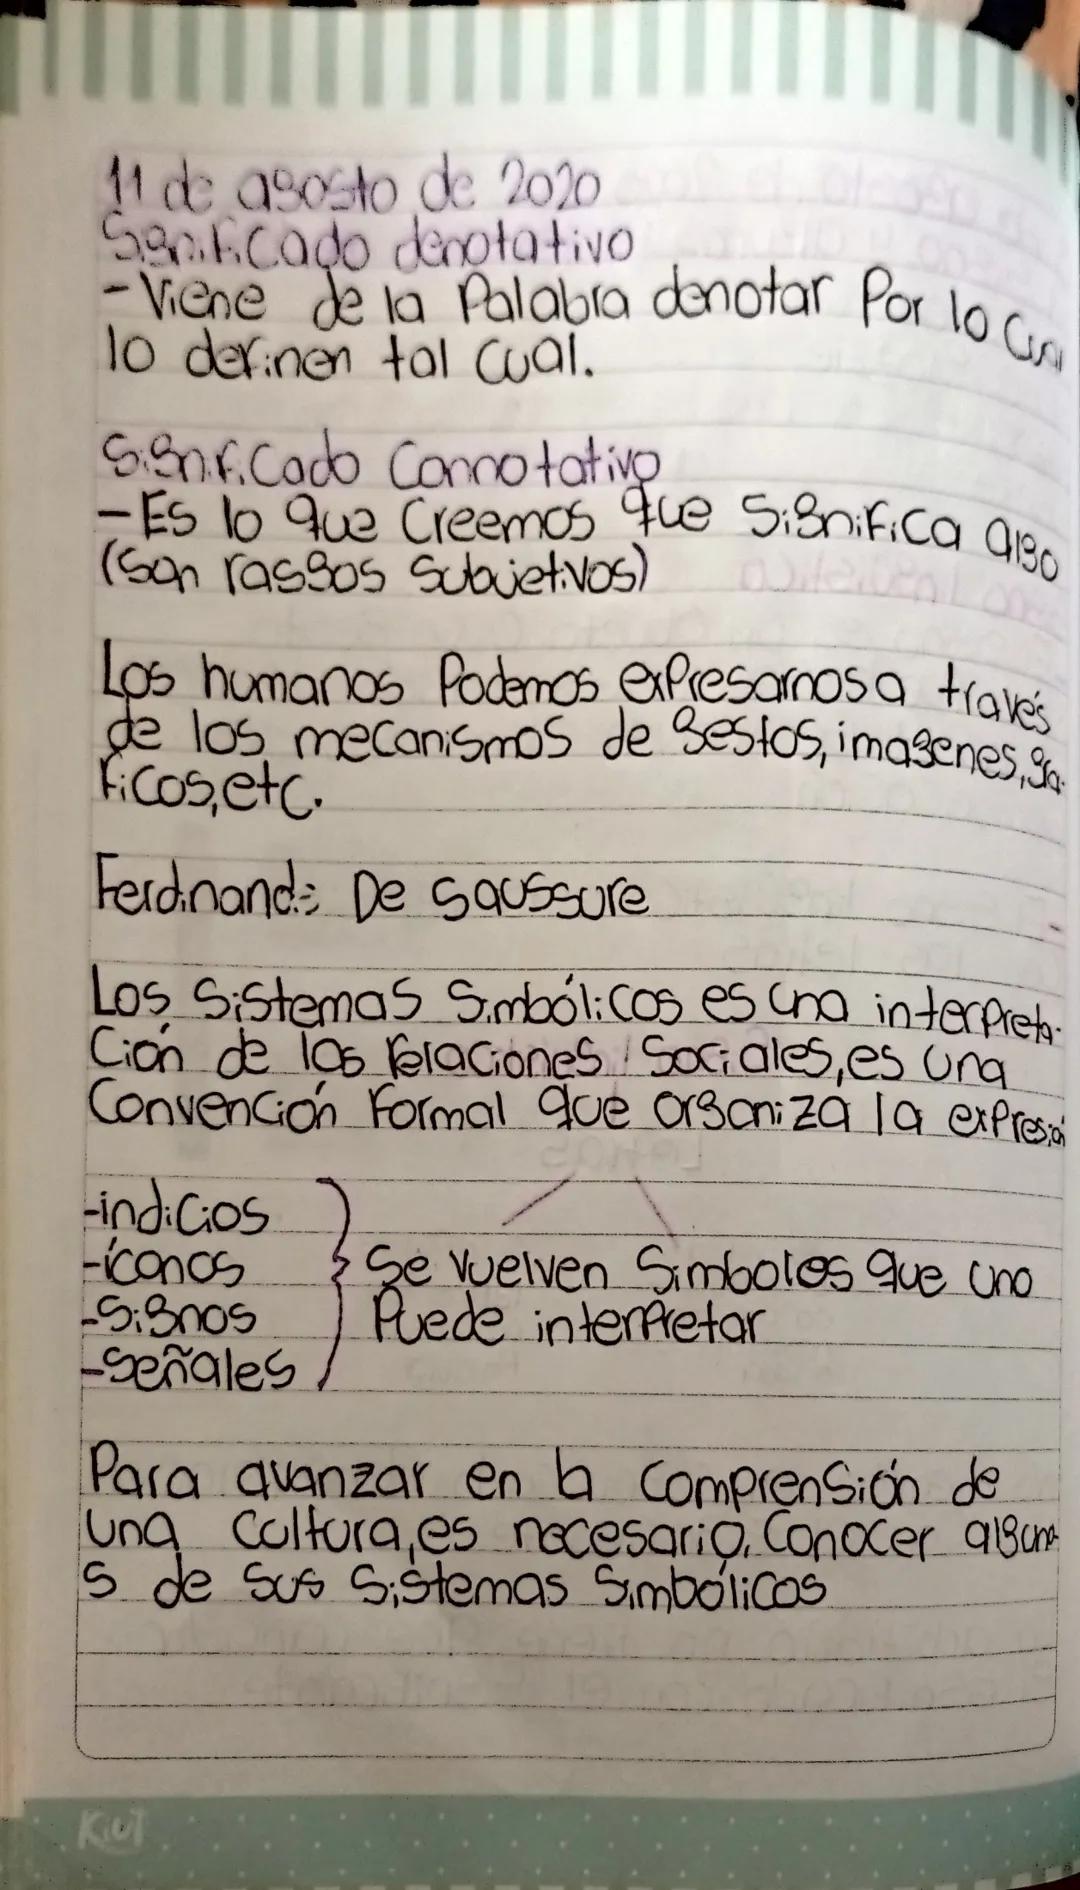 11 de agosto de 2020
Significado denotativo
- Viene de la Palabra denotar Por lo cual
lo definen tal cual.
Significado Connotativo
- Es lo que Creemos que Significa algo
(Son rasgos Subjetivos)
Los humanos Podemos expresarnos a través
de los mecanismos de gestos, imagenes, gra-
ficos, etc.
Ferdinand: De Saussure
Los Sistemas Simbólicos es una interpreta-
Ción de las relaciones Sociales, es una
Convención Formal que organiza la expresión
-indicios
-íconos
-Signos
-Señales
Se vuelven Simbolos que uno
Puede interpretar
Para avanzar en la Comprensión de
una Cultura, es necesario. Conocer alguna-
s de sus Sistemas Simbólicos
KiuT